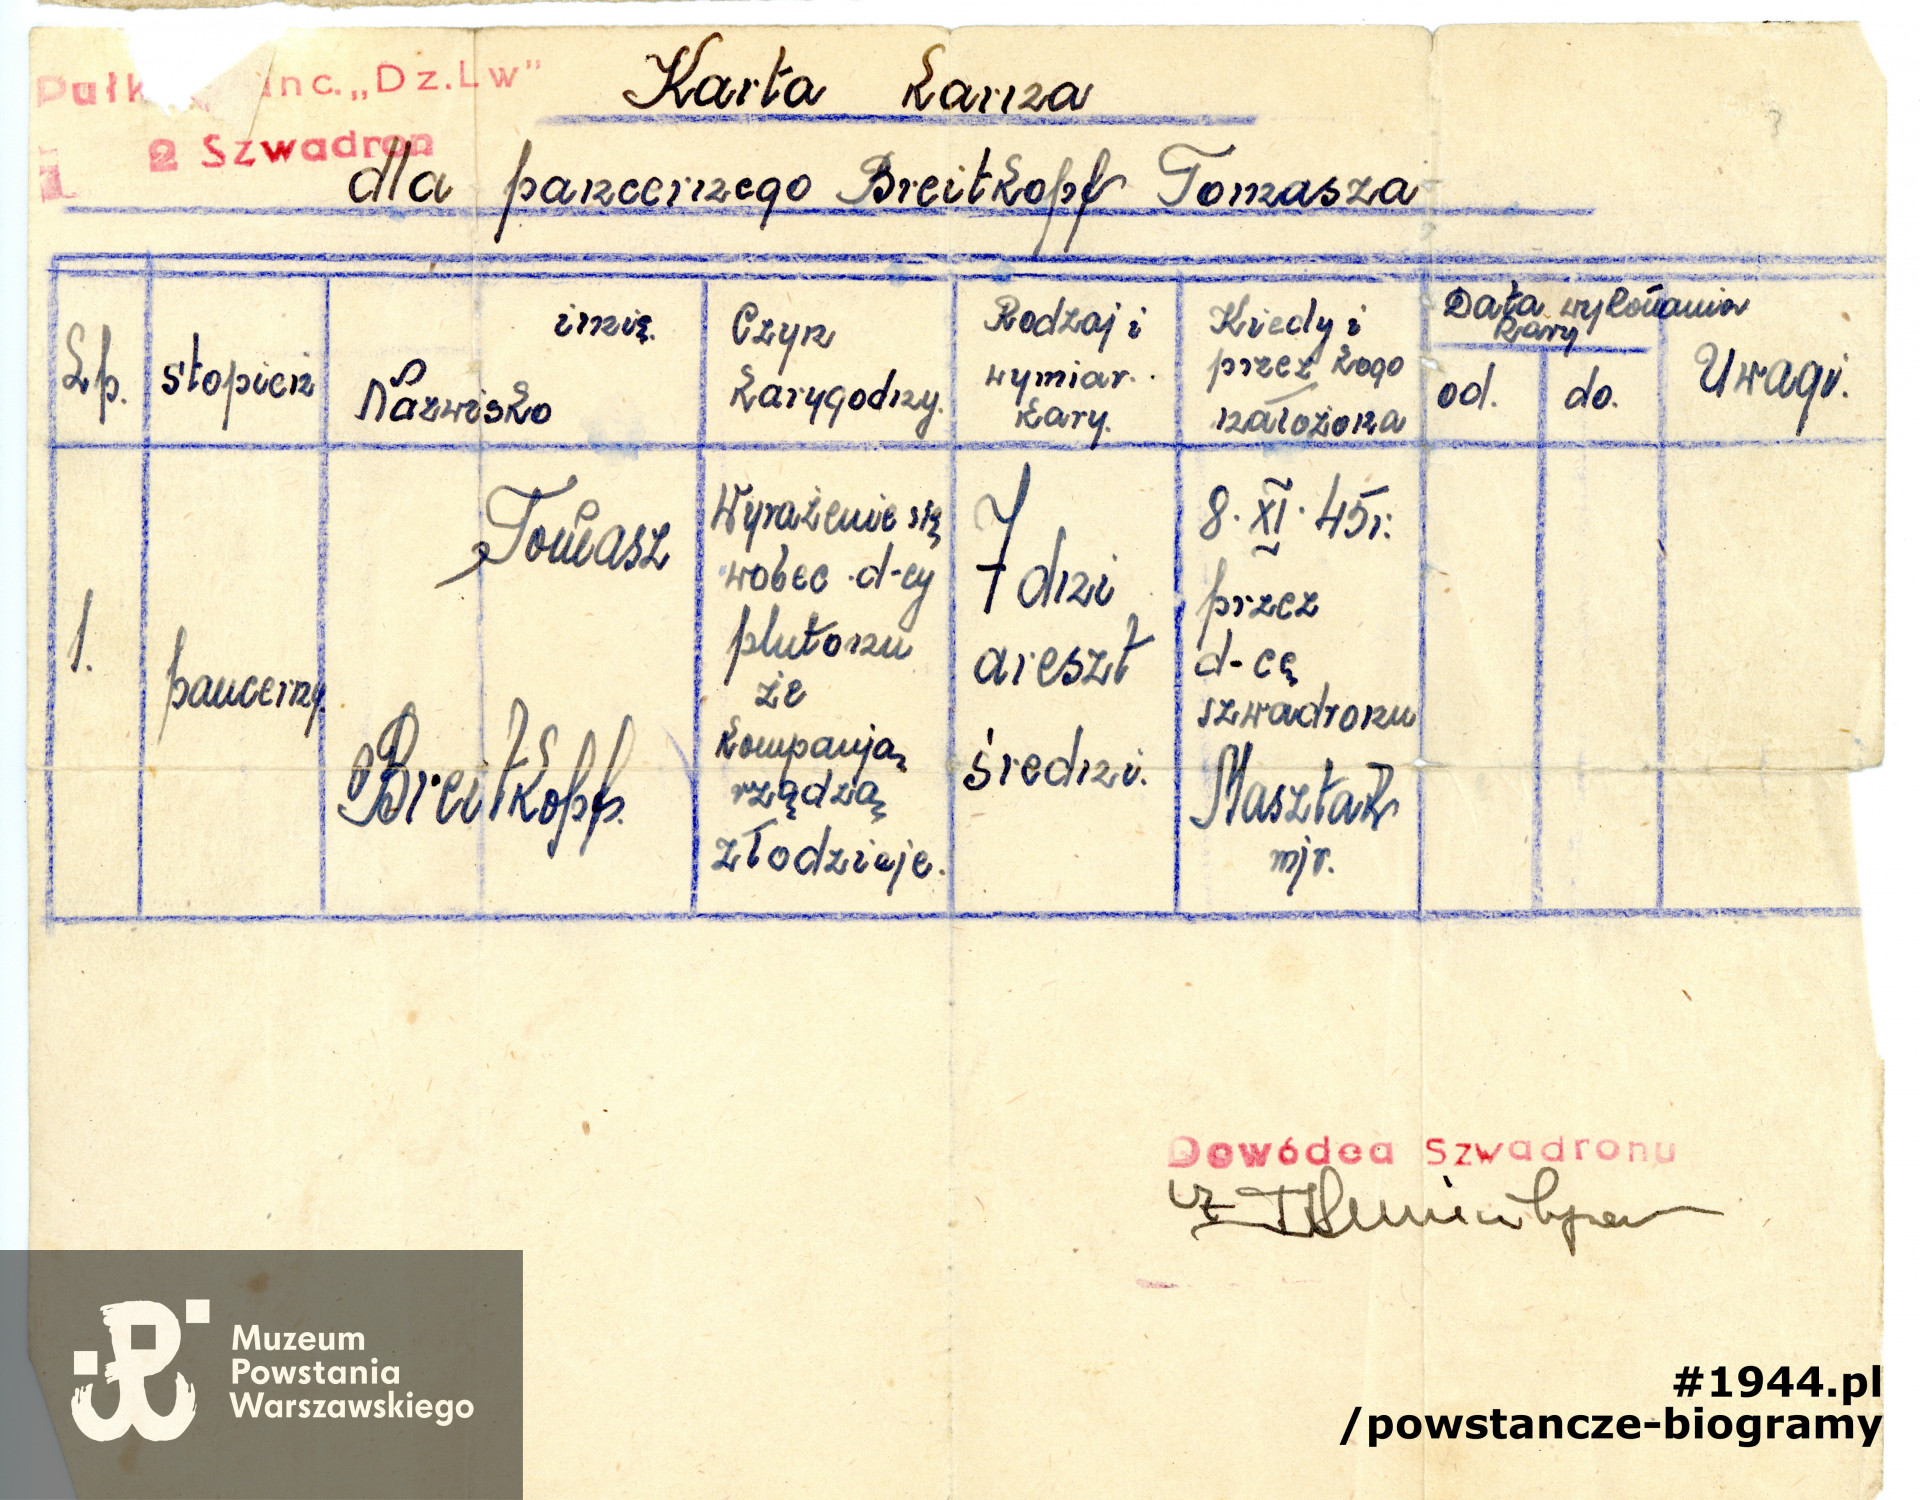 Pułk anc. „Dz. Lw"
2 Szwadron
Karta karna
dla pancernego Breitkopf Tomasza
Lp.
stopień
imię.
Nazwisko
Czyn
karygodny.
Rodzaj i
wymiar.
kary.
Kiedy i
przez kogo
nałożona
Data wykonania
kary
od.
do.
Uwagi.
1.
pancerny
Tomasz
Breitkopf.
Wyrażenie się
wobec d-cy
plutonu
że
kompanją
rządzą
złodzieje.
7 dni
areszt
średni.
8. XI. 45r.
przez
d-cę
szwadronu
Masztak
mjr.
Dowódca Szwadronu
wz
Muzeum
Powstania
Warszawskiego
#1944.pl
/powstancze-biogramy